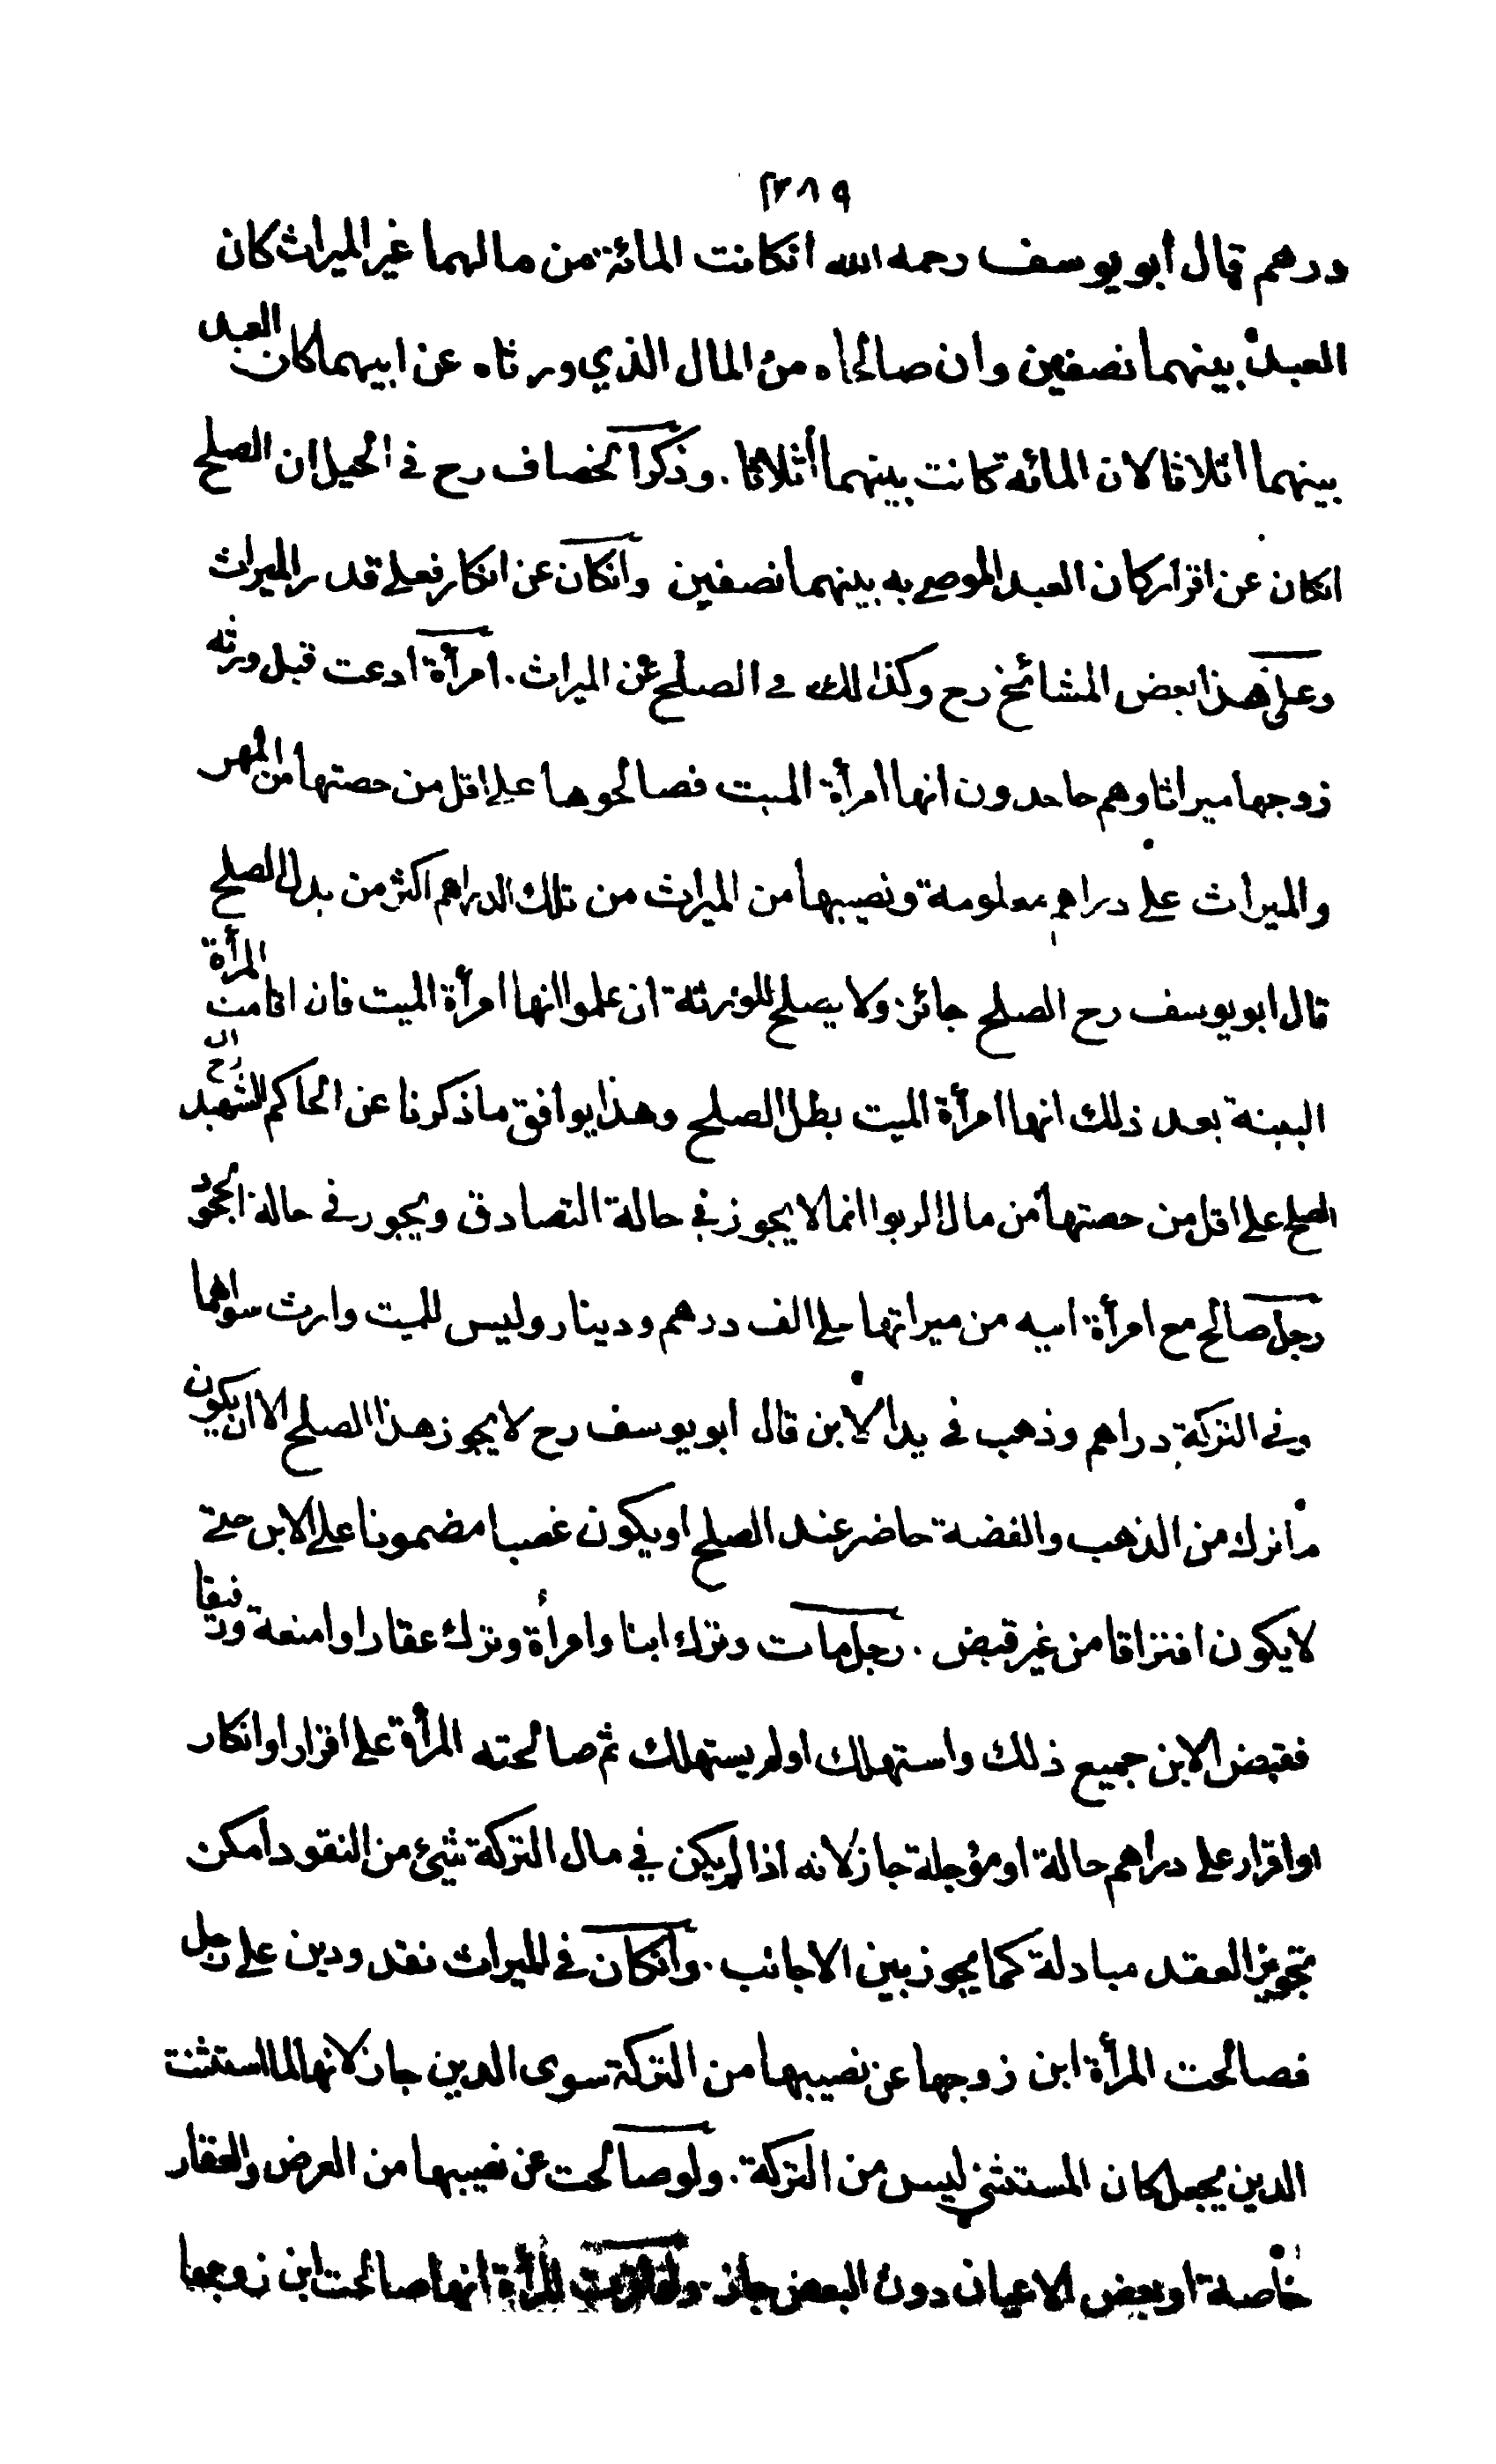 ٢٣٨٩
درهم قال أبو يوسف رحمه الله انكانت المائة من مالهما غير الميراث كان
العبد بينهما نصفين وان صالحاه من المال الذي ورثاه عن ابيهما كان العبد
بينهما اثلاثا لان المائة كانت بينهما أثلاثا . وذكر الخصاف رح في الحيل ان الصلح
انكان عن اقرار كان العبد الموصى به بينهما نصفين وانكان عن انكار فعلى قدر الميراث
وعلى هذا بعض المشائخ رح وكذا لك في الصلح عن الميراث . امرأة ادعت قبل ورثة
زوجها ميراثا وهم جاحدون انها امرأة الميت فصالحوها على اقل من حصتها من المهر
والميراث على دراهم معلومة ونصيبها من الميراث من تلك الدراهم اكثر من بدل الصلح
قال ابو يوسف رح الصلح جائز ولا يصلح للورثة ان علموا انها امرأة الميت فان اقامت المرأة
البينة بعد ذلك انها امرأة الميت بطل الصلح وهذا يوافق ما ذكرنا عن الحاكم الشهيد رح ان
الصلح على اقل من حصتها من مال الربوا انما لا يجوز في حالة التصادق ويجوز في حالة الجحود
رجل صالح مع امرأة ابيه من ميراثها على الف درهم ودينار وليس للميت وارث سواهما
وفي التركة دراهم وذهب في يد الابن قال ابو يوسف رح لا يجوز هذا الصلح الا ان يكون
ما ترك من الذهب والفضة حاضر عند الصلح او يكون غصبا مضمونا على الابن حتى
لا يكون افتراقا من غير قبض . رجل مات وترك ابنا وامرأة وترك عقارا وامتعة ورقيقا
فقبض الابن جميع ذلك واستهلك او لم يستهلك ثم صالحته المرأة على اقرار او انكار
او اقرار على دراهم حالة او مؤجلة جاز لانه اذا لم يكن في مال التركة شئ من النقود امكن
تجويز العقد مبادلة كما يجوز بين الاجانب . وانكان في الميراث نقد ودين على رجل
فصالحت المرأة ابن زوجها عن نصيبها من التركة سوى الدين جاز لانها لما استثنت
الدين يجعل كان المستثنى ليس من التركة . ولو صالحت عن نصيبها من العرض والعقار
خاصة او بعض الاعيان دون البعض جاز . المرأة انها صالحت ابن زوجها